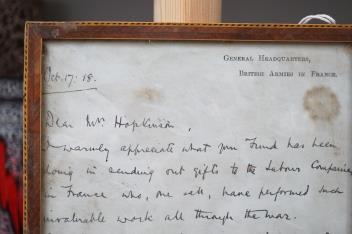 General Headquarters,
British Armies in France.
Oct. 17. 18.
Dear Mrs Hopkinson,
I warmly appreciate what your Fund has been
doing in sending out gifts to the Labour Companies
in France who, one & all, have performed such
invaluable work all through the war.